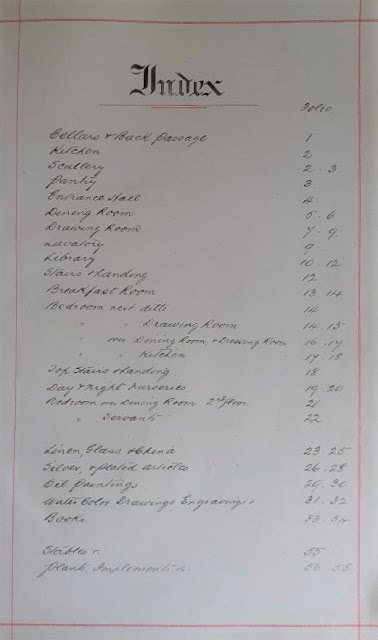 Index
Folio.
Cellars & Back Passage 1
Kitchen 2
Scullery 2 . 3.
Pantry 3.
Entrance Hall 4
Dining Room 5 . 6
Drawing Room 7 . 9.
Lavatory 9
Library 10 . 12
Stairs & Landing 12
Breakfast Room 13 . 14
Bedroom next ditto 14
" " Drawing Room 14 . 15
" over Dining Room & Dressing Room 16 . 17
" " Kitchen 17 . 18
Top Stairs & Landing 18
Day & Night Nurseries 19 . 20
Bedroom over Dining Room 2nd floor 21
" Servants 22
Linen, Glass & China 23 . 25
Silver, & plated articles 26 . 28
Oil Paintings 29 . 30
Water Color Drawings Engravings 31 . 32
Books 33 . 54
Stables 55
Plants Implements 56 . 58